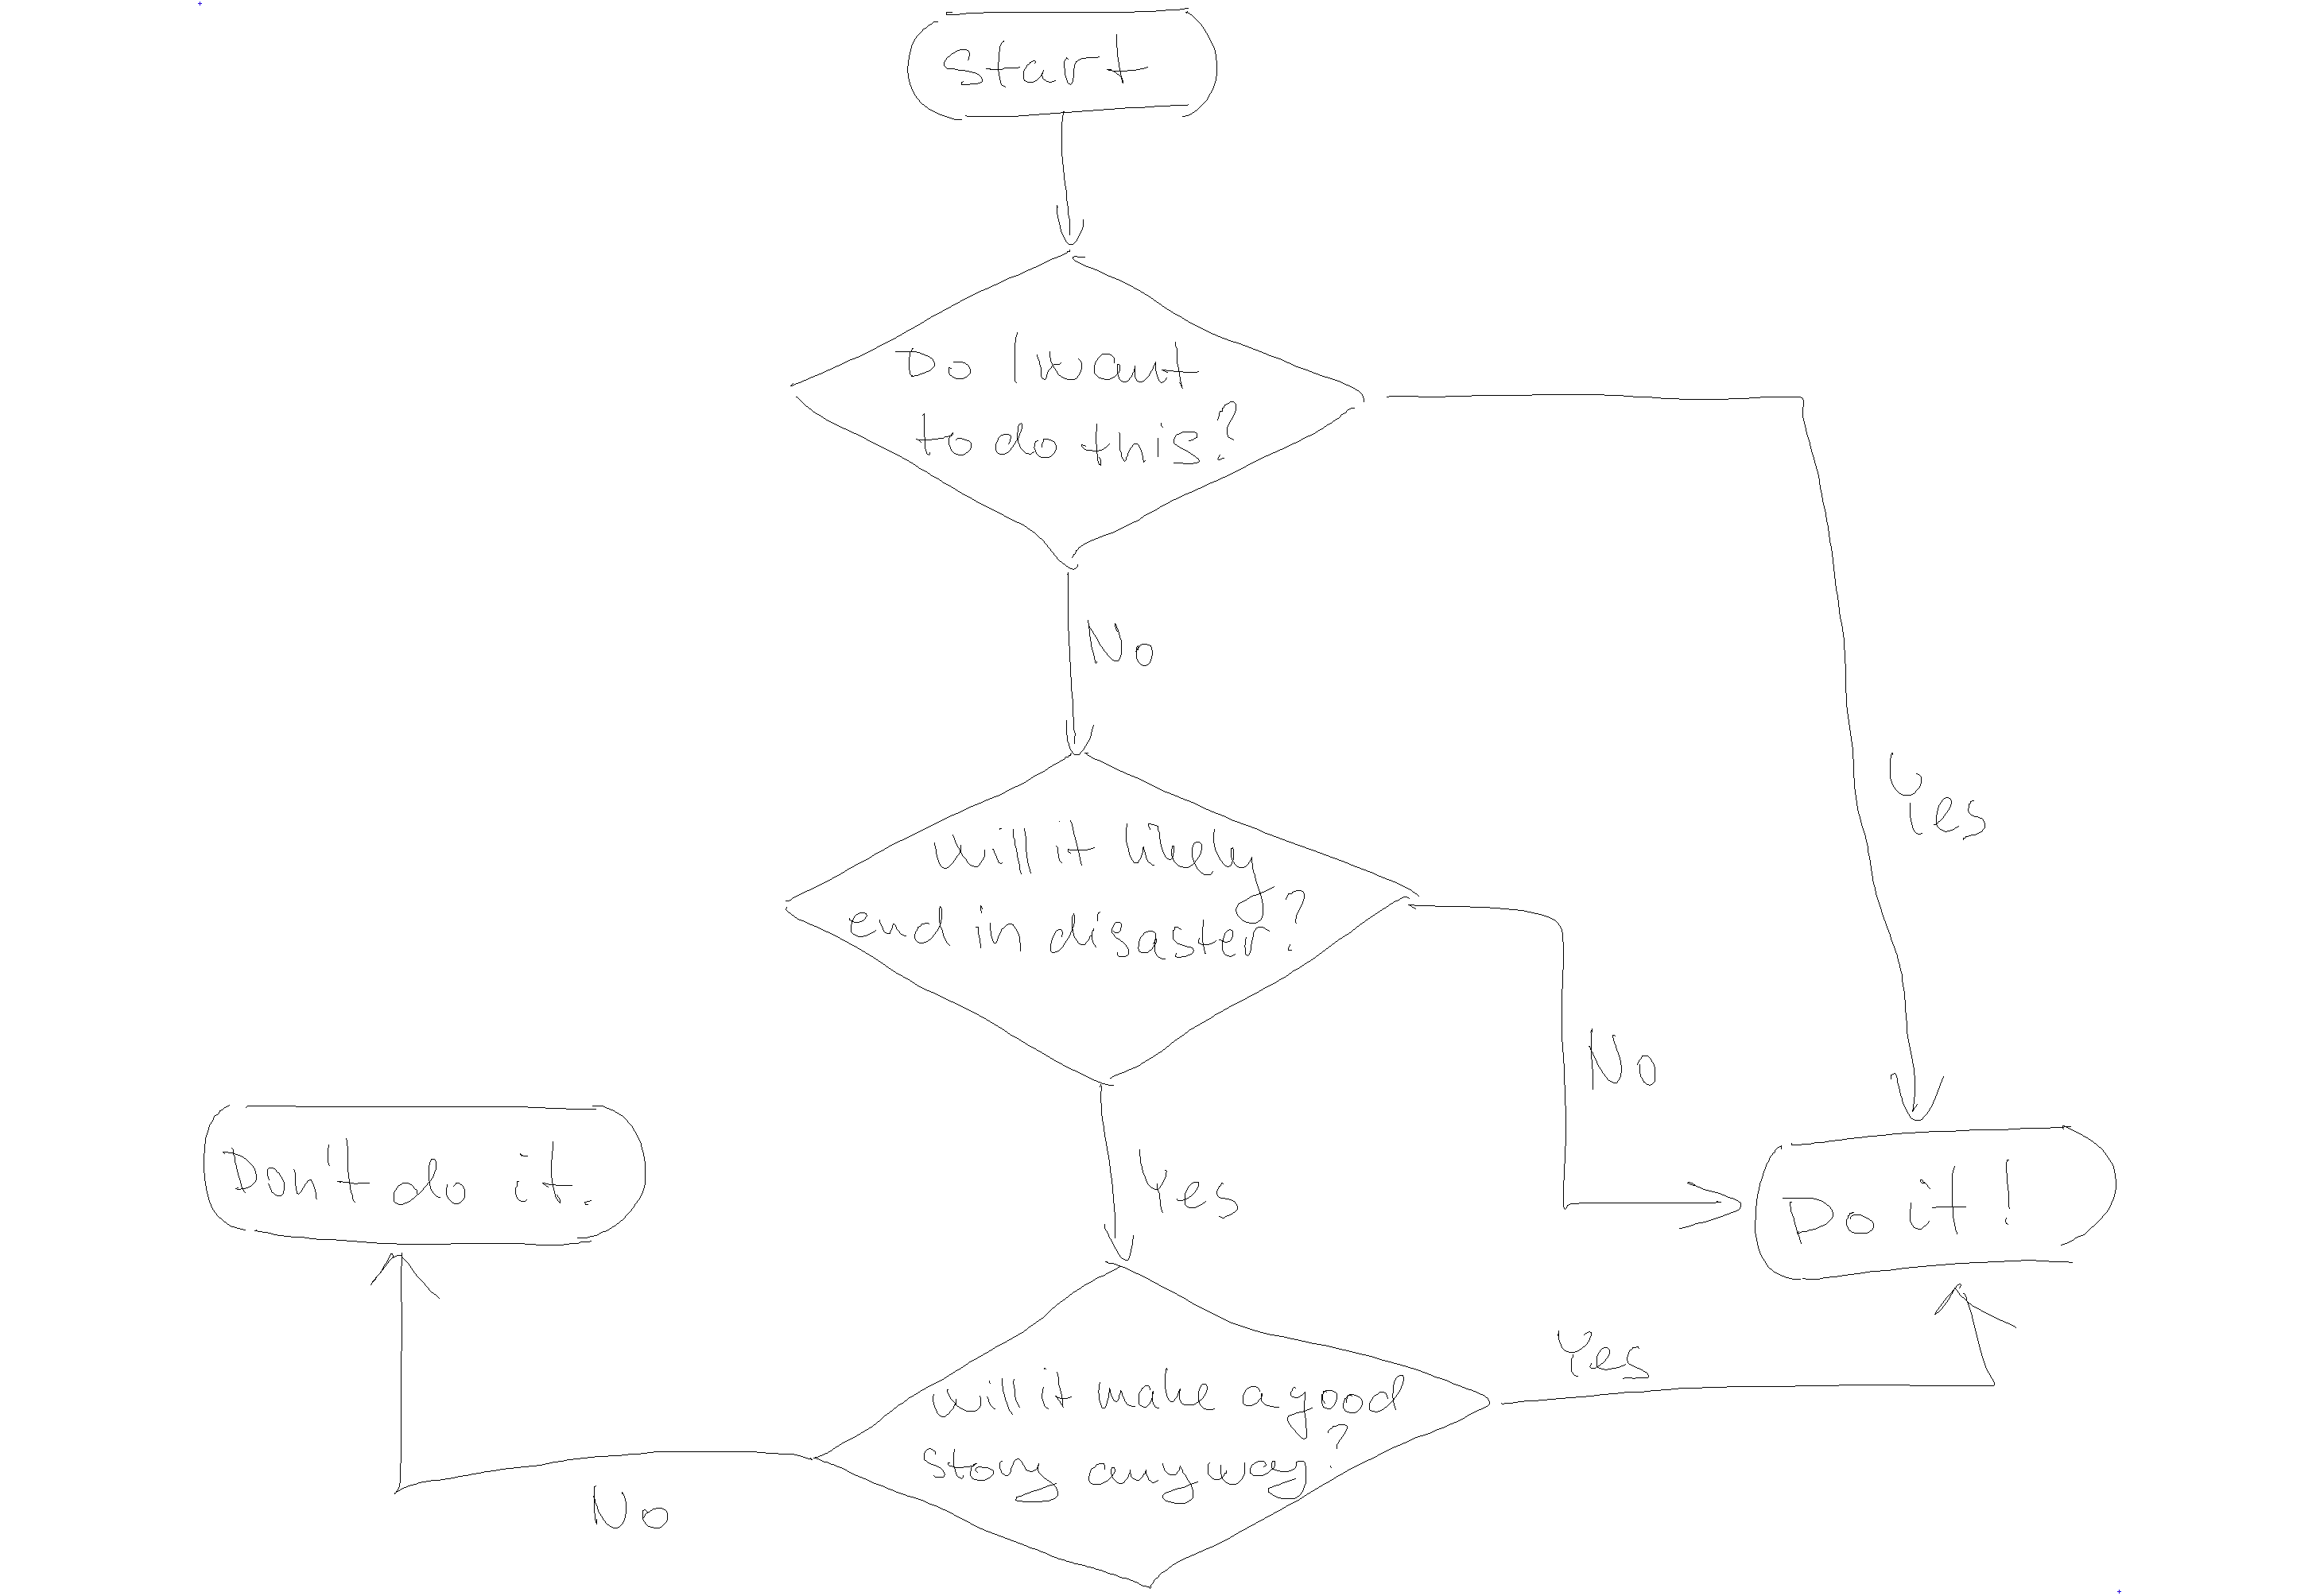 Start
Do I want
to do this?
No
Yes
will it likely
end in disaster?
No
Yes
Don't do it.
Do it!
Yes
will it make a good
story anyway?
No